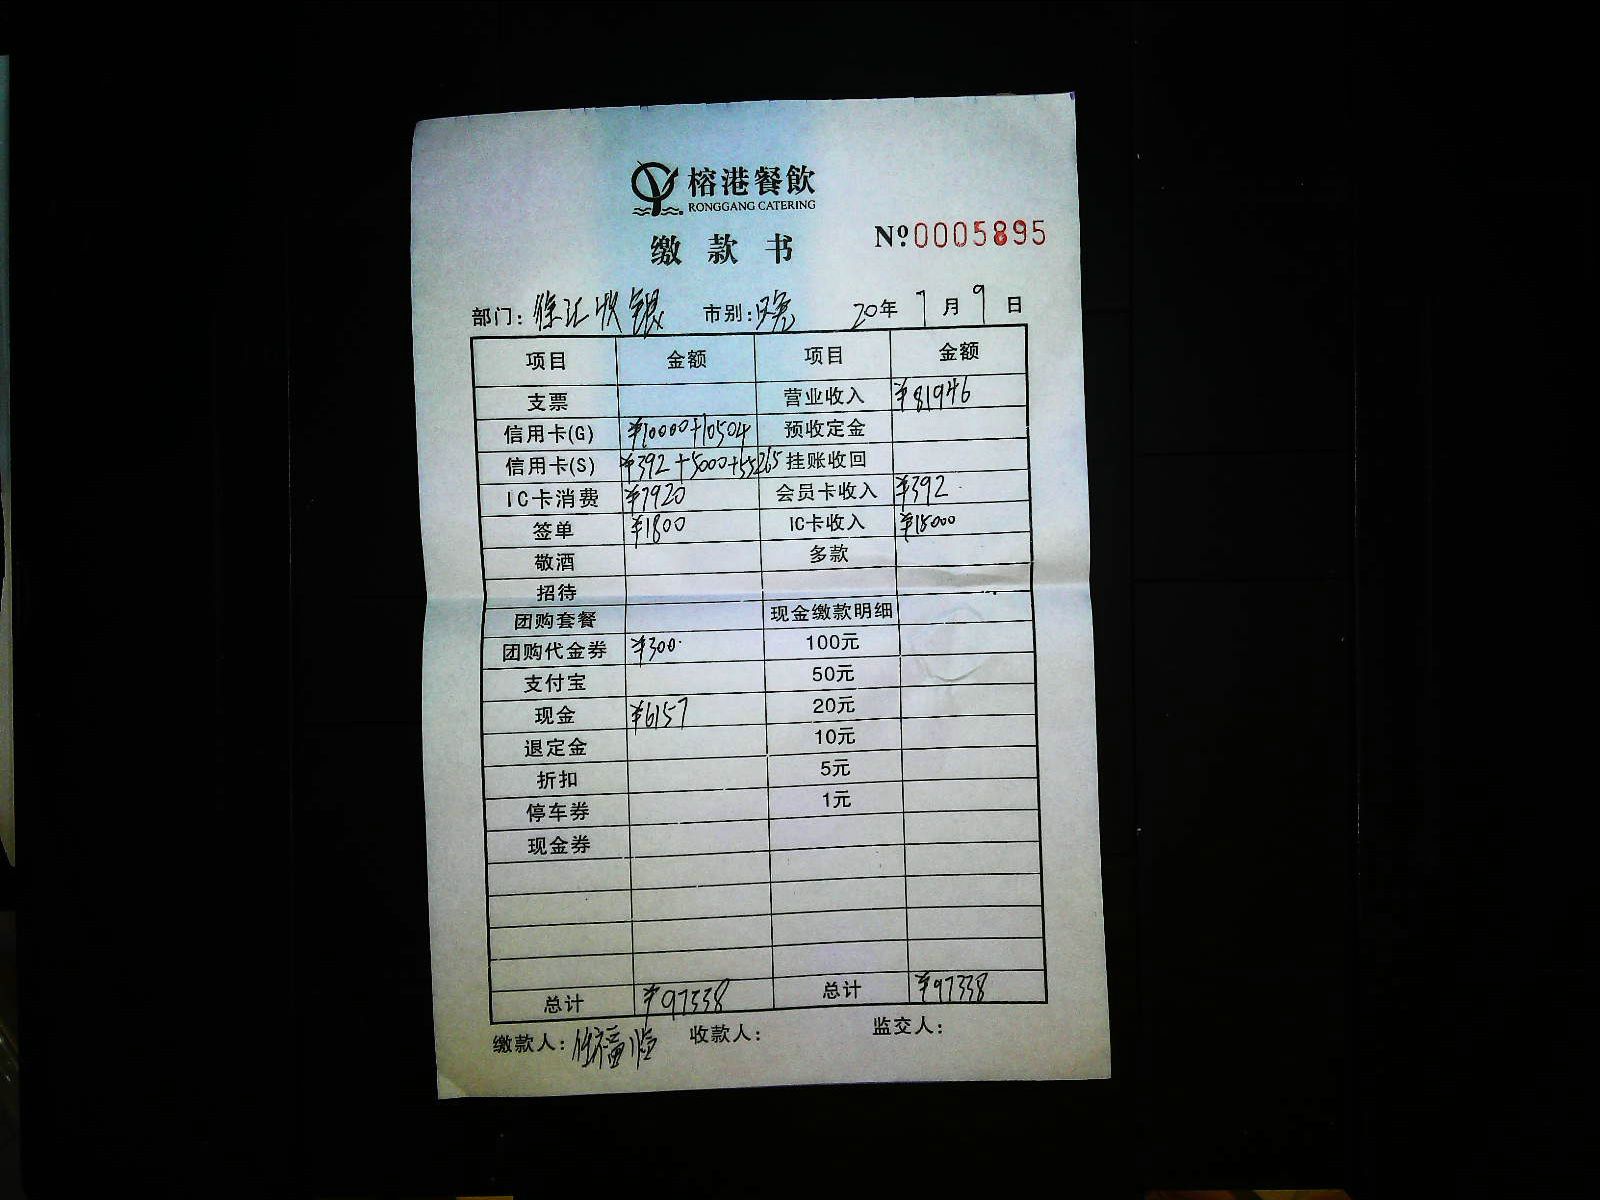 榕港餐飲
RONGGANG CATERING
缴款书
Nº0005895
部门:徐汇收银 市别:晚 20年7月9日
项目 金额 项目 金额
支票 营业收入 ¥81946
信用卡(G) ¥10000+10504 预收定金
信用卡(S) ¥392+5000+55265 挂账收回
IC卡消费 ¥7920 会员卡收入 ¥392
签单 ¥1800 IC卡收入 ¥15000
敬酒 多款
招待
团购套餐 现金缴款明细
团购代金券 ¥300 100元
支付宝 50元
现金 ¥6157 20元
退定金 10元
折扣 5元
停车券 1元
现金券
总计 ¥97338 总计 ¥97338
缴款人: 收款人: 监交人: